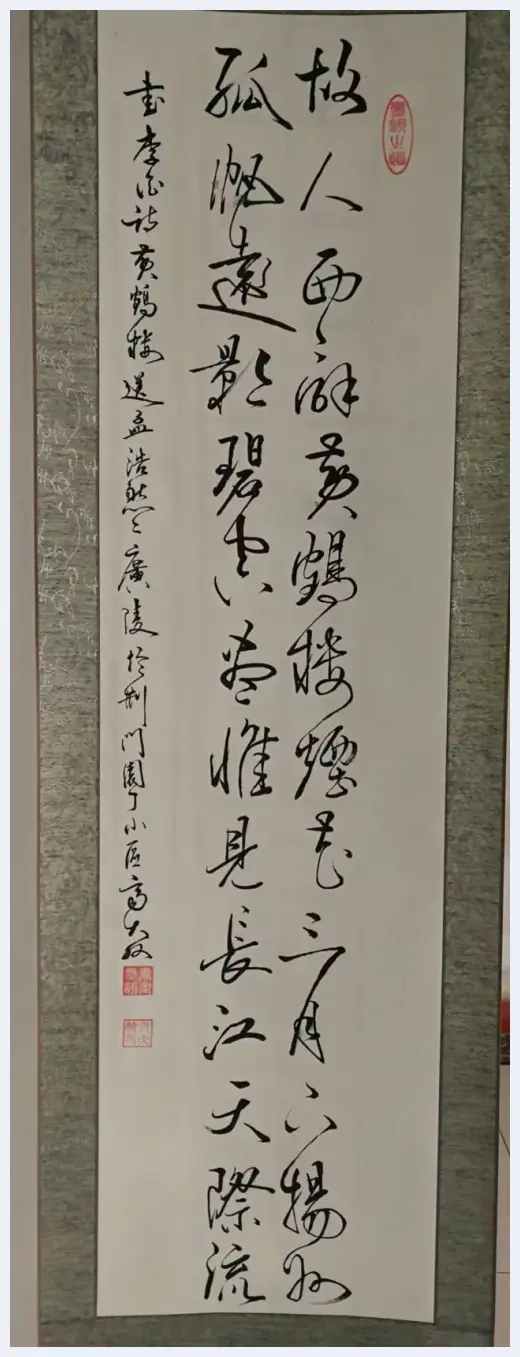 故人西辭黄鶴楼煙花三月下揚州
孤帆遠影碧空盡惟見長江天際流
书李白诗黄鶴楼送孟浩然之廣陵於荆门園丁小区高大